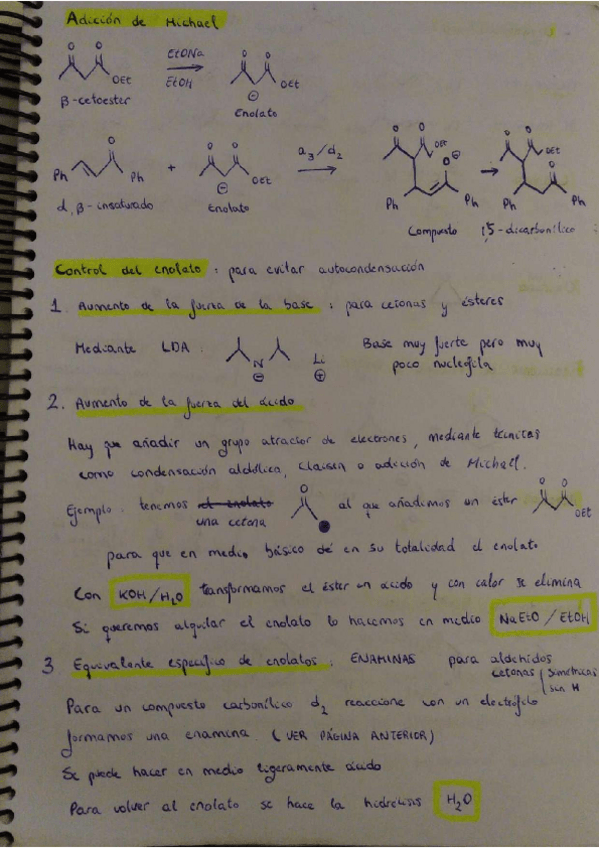 Adición de Michael
O O EtONa O O
OEt EtOH ⊖ OEt
β-cetoester Enolato
O O O a3/d2 O O OEt O⊖ O O OEt O
Ph Ph + ⊖ OEt Ph Ph Ph Ph
α,β-insaturado Enolato Compuesto 1,5-dicarbonílico
Control del enolato: para evitar autocondensación
1. Aumento de la fuerza de la base: para cetonas y ésteres
Mediante LDA N ⊖ Li ⊕ Base muy fuerte pero muy
poco nucleófila
2. Aumento de la fuerza del ácido
Hay que añadir un grupo atractor de electrones, mediante técnicas
como condensación aldólica, Claisen o adición de Michael.
Ejemplo: tenemos el enolato O al que añadimos un éster O O OEt
una cetona
para que en medio básico dé en su totalidad el enolato
Con KOH/H2O transformamos el éster en ácido y con calor se elimina
Si queremos alquilar el enolato lo hacemos en medio NaEtO/EtOH
3 Equivalente específico de enolatos: ENAMINAS para aldehidos
cetonas simétricas
sin H
Para un compuesto carbonílico d2 reaccione con un electrófilo
formamos una enamina. (VER PÁGINA ANTERIOR)
Se puede hacer en medio ligeramente ácido
Para volver al enolato se hace la hidrólisis H2O